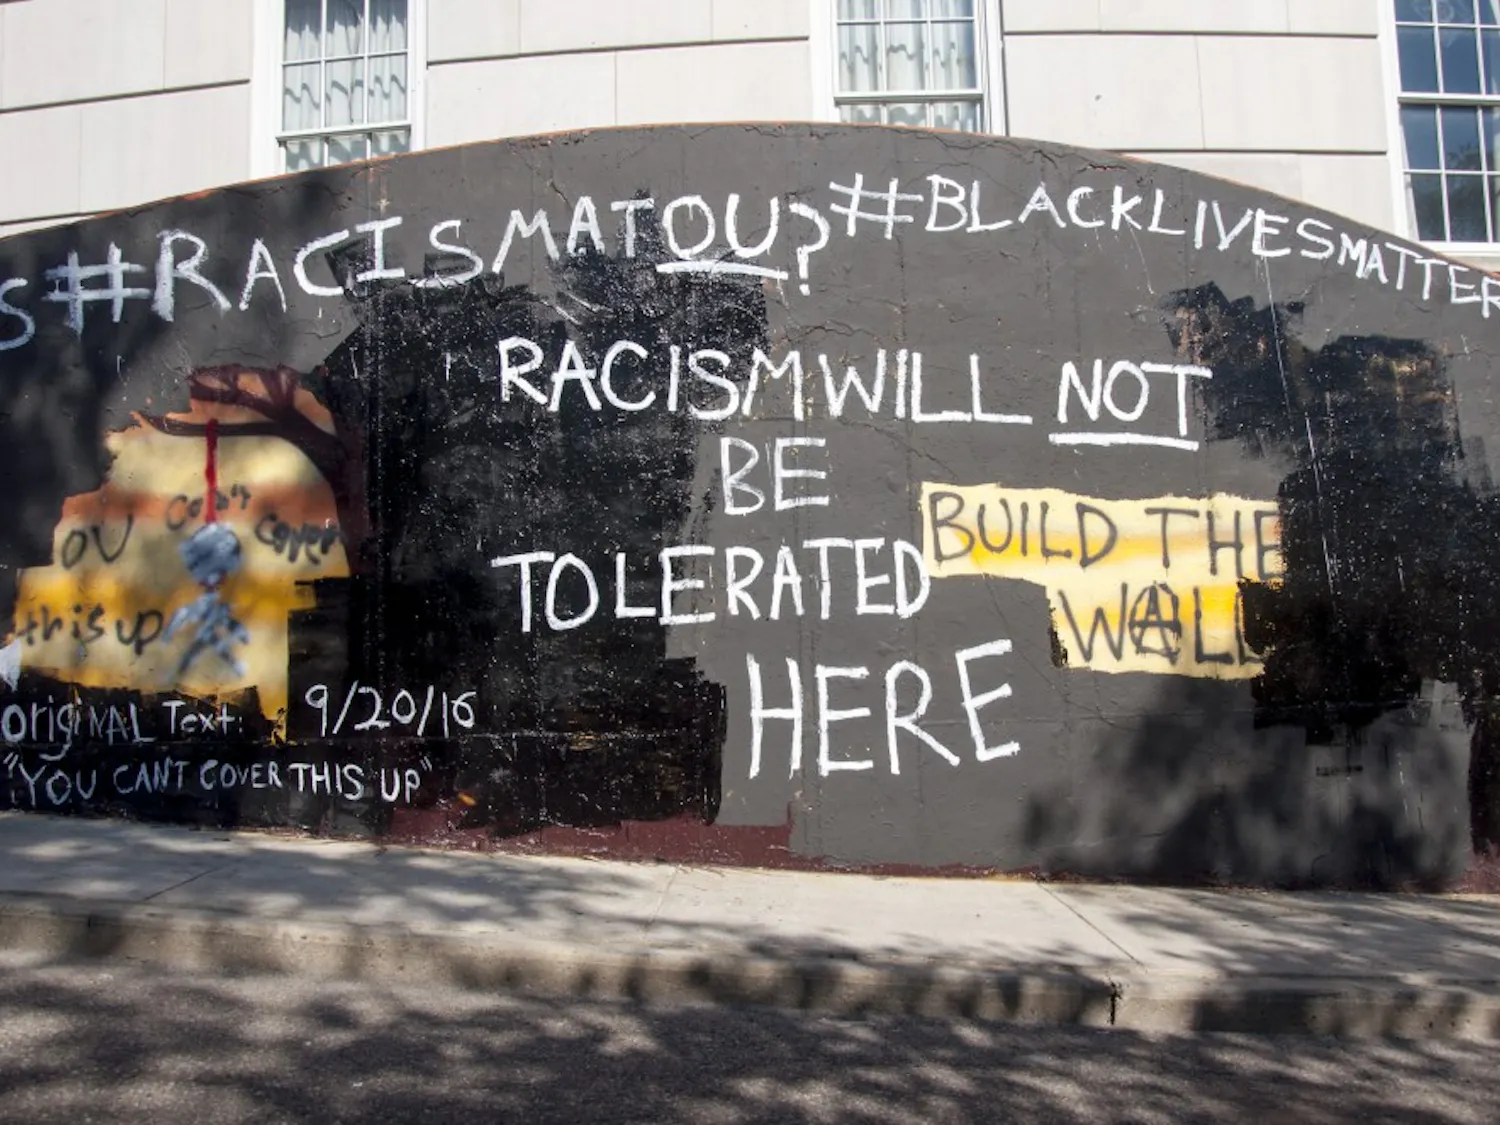 S #RACISMATOU? #BLACKLIVESMATTER
RACISM WILL NOT
BE
TOLERATED
HERE
BUILD THE
WALL
OU Can't cover
this up
original Text: 9/20/16
"YOU CAN'T COVER THIS UP"